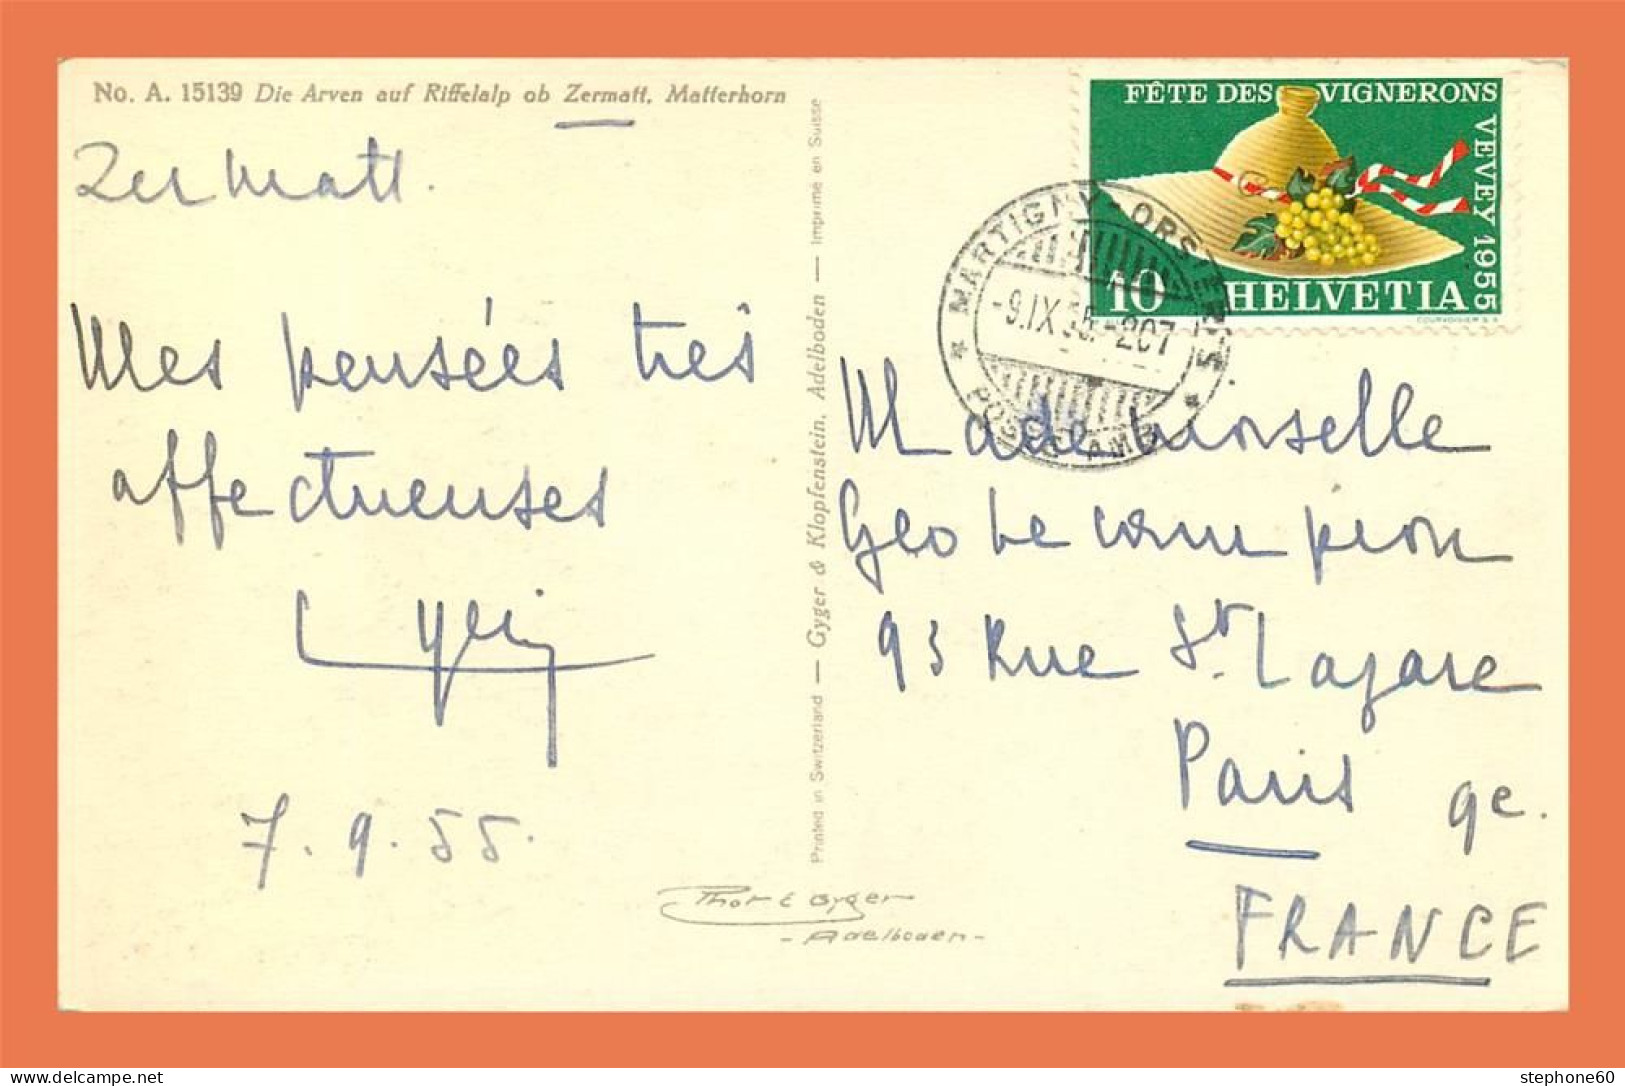 No. A. 15139 Die Arven auf Riffelalp ob Zermatt, Matterhorn
Zermatt.
Mes pensées très
affectueuses
7.9.55.
Printed in Switzerland — Gyger & Klopfenstein, Adelboden — Imprimé en Suisse
Phot E Gyger
- Adelboden -
FÊTE DES VIGNERONS
VEVEY 1955
10 HELVETIA
COURVOISIER S.A.
MARTIGNY - ORSIÈRES
-9.IX.55.-207
Mademoiselle
93 Rue St. Lazare
Paris 9e.
FRANCE
stephone60